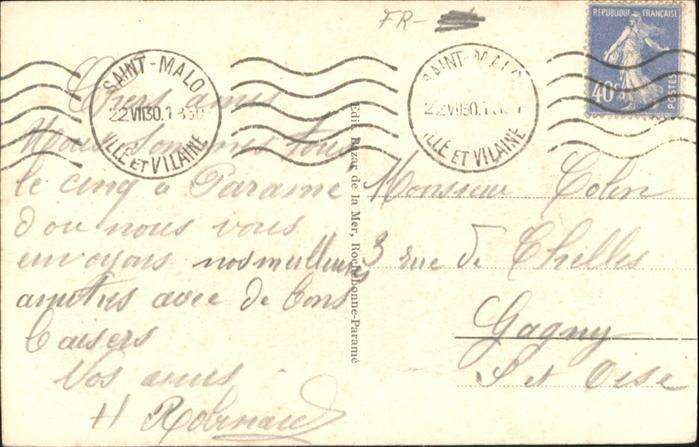 FR-
REPUBLIQUE FRANÇAISE
40c
POSTES
SAINT-MALO
22 VII 30. 1
ILLE ET VILAINE
SAINT-MALO
22 VII 30. 1
ILLE ET VILAINE
Chers amis
Nous sommes tous
le cinq à Parame
d'ou nous vous
envoyons nos meilleurs
amitiés avec de bons
baisers
Vos amis
H Robinaud
Edit. Bazar de la Mer, Rochebonne-Paramé
Monsieur Colin
3 rue de Chelles
Gagny
S et Oise